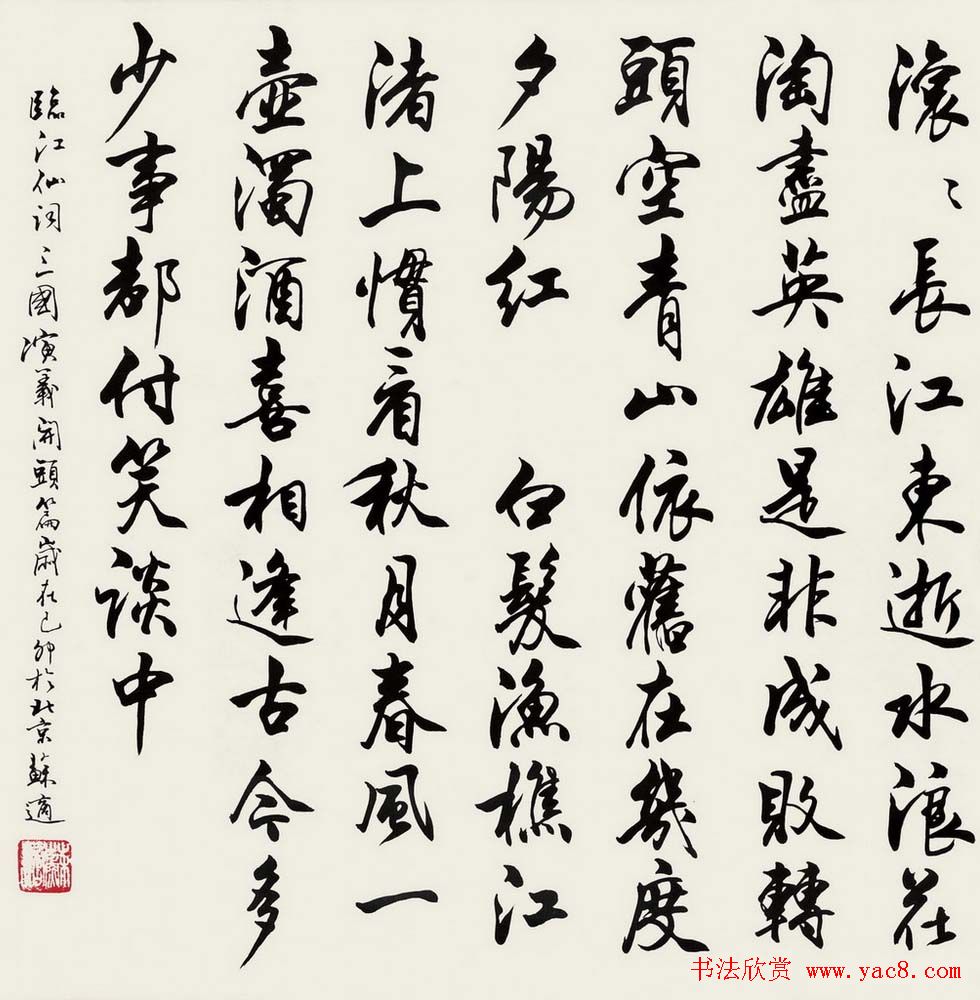 滾〻長江東逝水浪花
淘盡英雄是非成敗轉
頭空青山依舊在幾度
夕陽紅 白髮漁樵江
渚上慣看秋月春風一
壺濁酒喜相逢古今多
少事都付笑談中
臨江仙词三國演義開頭篇歲在己卯於北京蘇適
书法欣赏 www.yac8.com